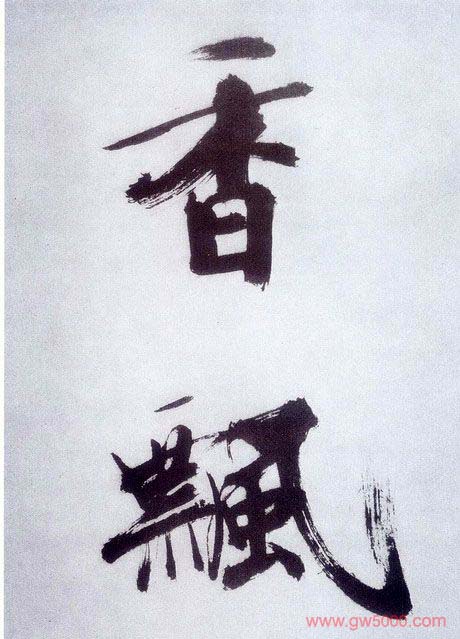 香
飄
www.gw5000.com